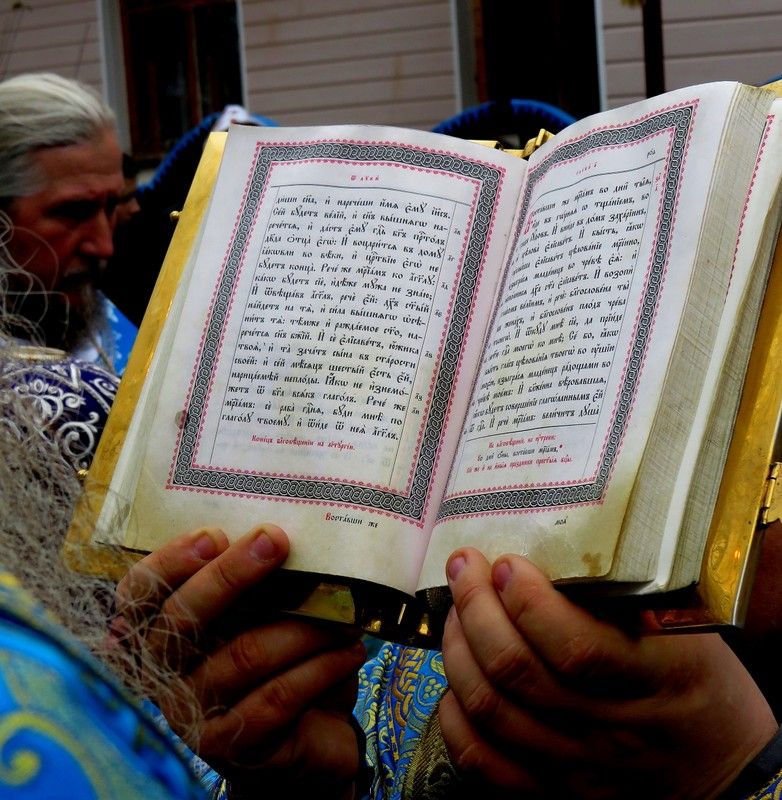 Ѿ лꙋки́
ди́ши сн҃а, и҆ нарече́ши и҆́мя є҆мꙋ̀ і҆и҃съ.
Се́й бꙋ́детъ ве́лїй, и҆ сн҃ъ вы́шнягѡ на-
рече́тся, и҆ да́стъ є҆мꙋ̀ гд҇ь бг҃ъ прⷭ҇то́лъ
дв҃да ѻ҆тца̀ є҆гѡ̀: И҆ воцари́тся въ домꙋ̀
і҆а́кѡвли во вѣ́ки, и҆ црⷭ҇твїю є҆гѡ̀ не
бꙋ́детъ конца̀. Рече́ же мр҃їа́мъ ко а҆́гг҃лꙋ:
ка́кѡ бꙋ́детъ сїѐ, и҆дѣ́же мꙋ́жа не зна́ю;
И҆ ѿвѣща́въ а҆́гг҃лъ, речѐ є҆́й: дх҃ъ ст҃ы́й
на́йдетъ на тя̀, и҆ си́ла вы́шнягѡ ѡ҆сѣ-
ни́тъ тя̀: тѣ́мже и҆ ражда́емое ст҃о, на-
рече́тся сн҃ъ бж҃їй. И҆ сѐ є҆лїсаве́тъ, ю҆́жика
твоя̀, и҆ та̀ зача́тъ сы́на въ ста́рости
свое́й: и҆ се́й мц҇ъ шесты́й є҆́сть є҆́й,
нарица́емѣй непло́ды. Ꙗ҆́кѡ не и҆знемо́-
жетъ ѿ бг҃а вся́къ глаго́лъ. Рече́ же
мр҃їа́мъ: сѐ раба̀ гдⷭ҇ня, бꙋ́ди мнѣ̀ по
глаго́лꙋ твоемꙋ̀. и҆ ѿи́де ѿ нея̀ а҆́гг҃лъ.
Коне́цъ благовѣ́щенїю на лїтꙋргі́и.
Воста́вши же
воста́вши же мр҃їа́мъ во дни̑ ты̑я,
и́де въ гѡ́рняя со тща́нїемъ, во
И҆ вни́де въ до́мъ заха́рїинъ,
є҆лїсаве́тъ. И҆ бы́сть,
є҆лїсаве́тъ цѣлова́нїе мр҃їи́но,
взыгра́ся младе́нецъ во чре́вѣ є҆ѧ̀: и҆
дх҃а ст҃а є҆лїсаве́тъ. И҆ возопѝ
гла́сомъ ве́лїимъ, и҆ речѐ: благослове́на ты̀
въ жена́хъ, и҆ благослове́нъ пло́дъ чре́ва
И҆ ѿкꙋ́дꙋ мнѣ̀ сїѐ, да прїи́де
гд҇а моегѡ̀ ко мнѣ̀. Се́ бо, ꙗ҆́кѡ
бы́сть гла́съ цѣлова́нїя твоегѡ̀ во ᲂу҆́шїю
взыгра́ся младе́нецъ ра́дощами во
чре́вѣ мое́мъ. И҆ бл҃же́нна вѣ́ровавшая,
ꙗ҆́кѡ бꙋ́детъ соверше́нїе глаго́ланнымъ є҆́й
И҆ речѐ мр҃їа́мъ: вели́читъ дꙋша̀
На благовѣ́щенїе, на ᲂу҆́трени:
Во дни̑ ѡ҆́ны, воста́вши мр҃їа́мъ,
моя̀